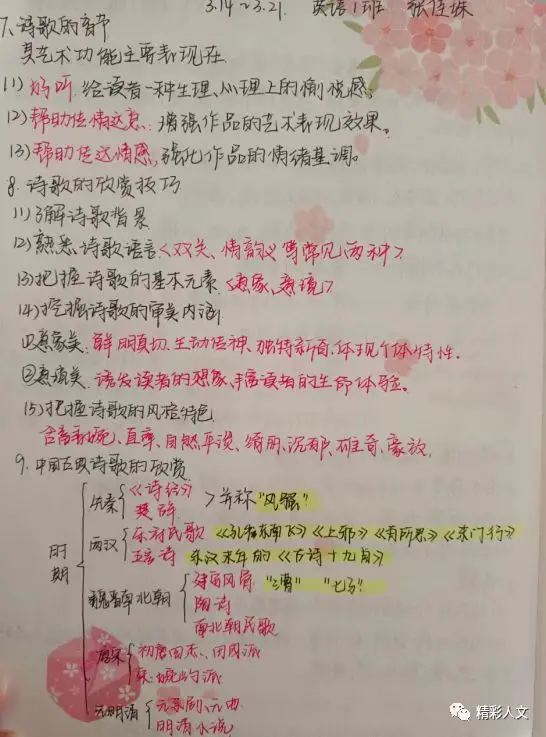 3.14~3.21 英语1班 张佳姝
7、诗歌的音节
其艺术功能主要表现在
(1)好听:给读者一种生理、心理上的愉悦感;
(2)帮助传情达意:增强作品的艺术表现效果。
(3)帮助传达情感,强化作品的情绪基调。
8.诗歌的欣赏技巧
(1)了解诗歌背景
(2)熟悉诗歌语言<双关、情韵义等常见两种>
(3)把握诗歌的基本元素<意象、意境>
(4)挖掘诗歌的审美内涵
①意象美:鲜明真切、生动传神、独特新奇、体现个体特性.
②意境美:诱发读者的想象,丰富读者的生命体验。
(5)把握诗歌的风格特色
含蓄委婉、直率、自然平淡、绮丽、沉郁、雄奇、豪放.
9.中国古典诗歌的欣赏
时期
先秦 《诗经》 楚辞 >并称"风骚"
两汉 乐府民歌《孔雀东南飞》《上邪》《有所思》《东门行》
五言诗 东汉末年的《古诗十九首》
魏晋南北朝 建安风骨 "三曹" "七子"
陶诗
南北朝民歌
唐宋 初唐四杰、田园派
宋:婉约派
元明清 元杂剧、元曲
明清小说
精彩人文